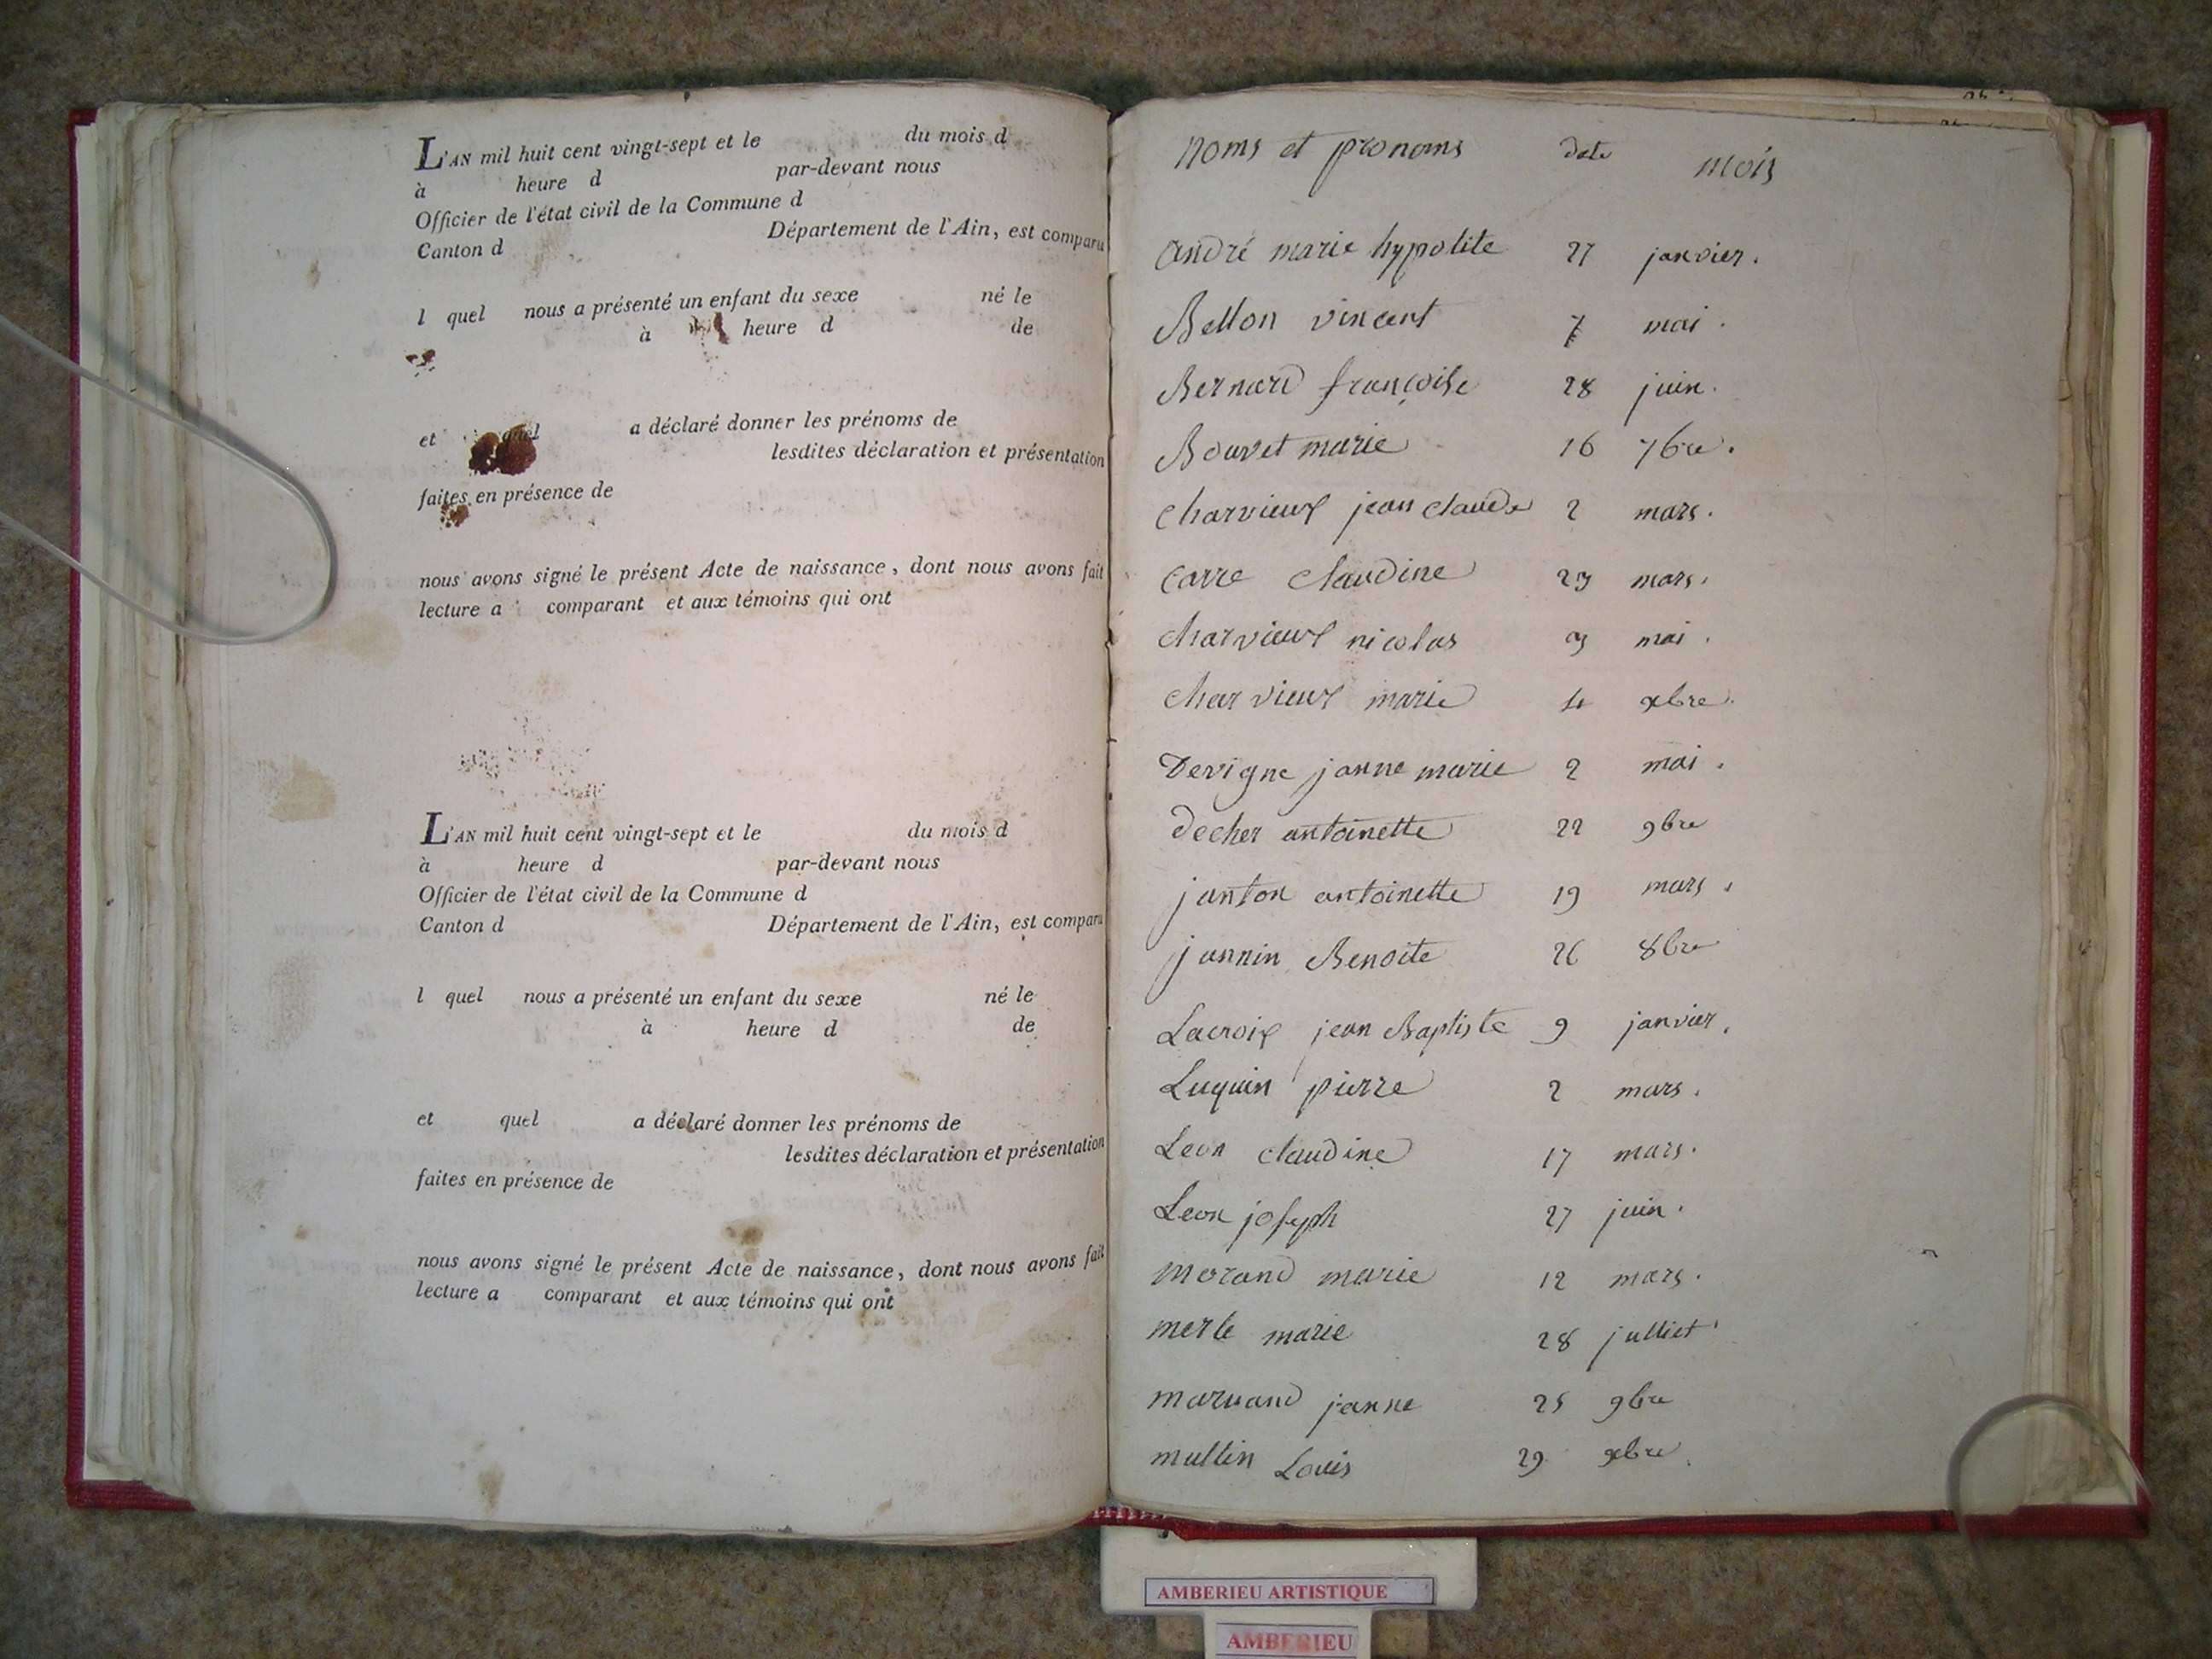 L'AN mil huit cent vingt-sept et le du mois d
à heure d par-devant nous
Officier de l'état civil de la Commune d
Canton d Département de l'Ain, est comparu
l quel nous a présenté un enfant du sexe né le
à heure d de
et quel a déclaré donner les prénoms de
lesdites déclaration et présentation
faites en présence de
nous avons signé le présent Acte de naissance, dont nous avons fait
lecture a comparant et aux témoins qui ont
L'AN mil huit cent vingt-sept et le du mois d
à heure d par-devant nous
Officier de l'état civil de la Commune d
Canton d Département de l'Ain, est comparu
l quel nous a présenté un enfant du sexe né le
à heure d de
et quel a déclaré donner les prénoms de
lesdites déclaration et présentation
faites en présence de
nous avons signé le présent Acte de naissance, dont nous avons fait
lecture a comparant et aux témoins qui ont
noms et pronoms date mois
andré marie hypolite 27 janvier.
Bellon vincent 7 mai.
Bernard françoise 28 juin.
Bouvet marie 16 7bre.
charvieux jean claude 2 mars.
carre claudine 29 mars.
charvieux nicolas 9 mai.
charvieux marie 4 xbre.
Devigne janne marie 2 mai.
decher antoinette 22 9bre
janton antoinette 19 mars.
jannin Benoite 26 8bre
Lacroix jean Baptiste 9 janvier.
Luquin pierre 2 mars.
Leon claudine 17 mars.
Leon joseph 27 juin.
morand marie 12 mars.
merle marie 28 julliet
maruand janne 25 9bre
multin Louis 29 xbre.
AMBERIEU ARTISTIQUE
AMBERIEU